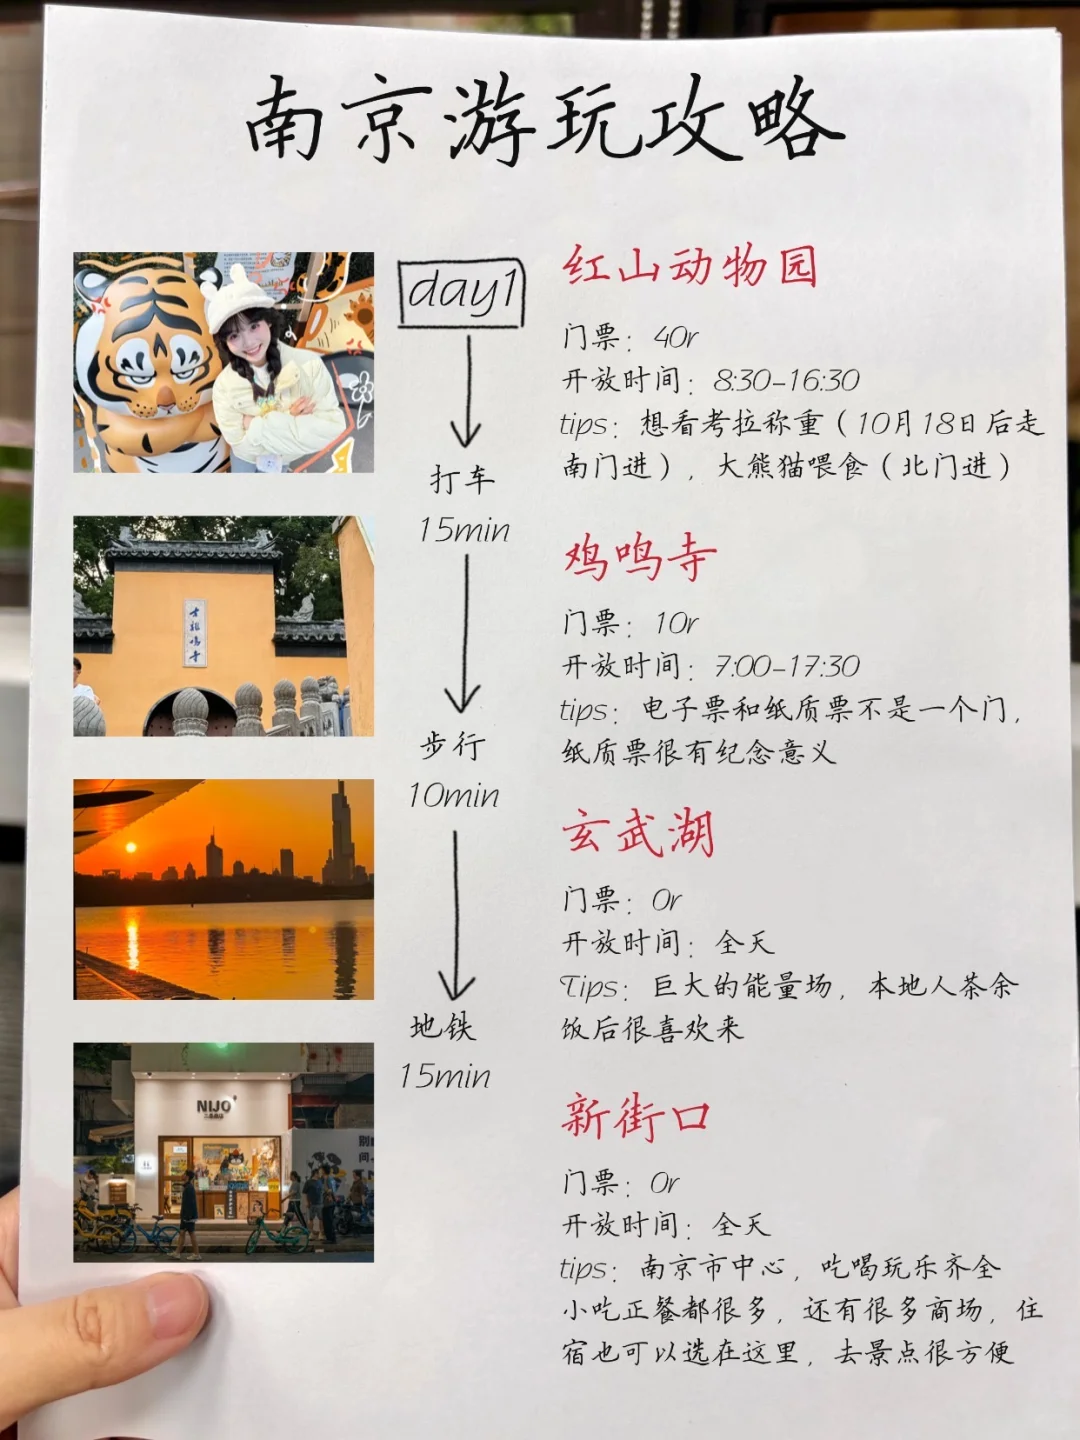 南京游玩攻略
day1
打车
15min
步行
10min
地铁
15min
红山动物园
门票：40r
开放时间：8:30-16:30
tips：想看考拉称重（10月18日后走
南门进），大熊猫喂食（北门进）
鸡鸣寺
门票：10r
开放时间：7:00-17:30
tips：电子票和纸质票不是一个门，
纸质票很有纪念意义
玄武湖
门票：0r
开放时间：全天
Tips：巨大的能量场，本地人茶余
饭后很喜欢来
新街口
门票：0r
开放时间：全天
tips：南京市中心，吃喝玩乐齐全
小吃正餐都很多，还有很多商场，住
宿也可以选在这里，去景点很方便
古鸡鸣寺
NIJO